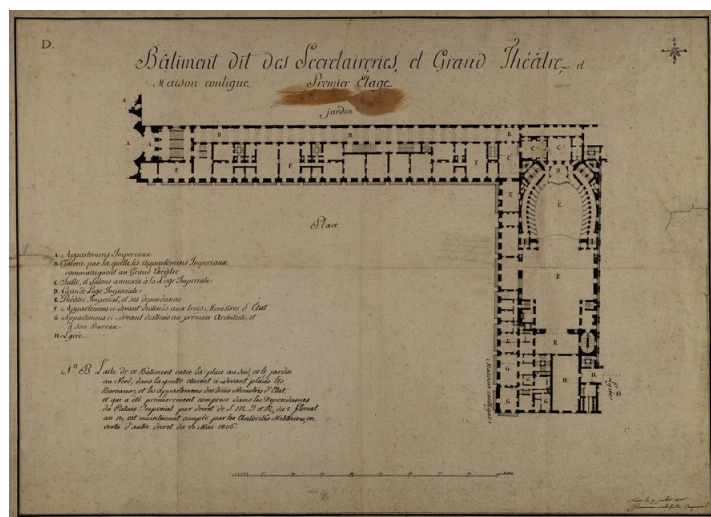 D.
Bâtiment dit des Secrétaireries, et Grand Théâtre, et
Maison contigue Premier Etage
jardin
Place
A. Appartemens Imperiaux
B. Galerie par la quelle les Appartemens Imperiaux
communiquent au Grand Théâtre
C. Salle, et Salons annexés à la Loge Imperiale
D. Grande Loge Imperiale
E. Théâtre Imperial, et ses dependances
F. Appartemens ci-devant destinés aux trois Ministres d'État
G. Appartemens ci-devant destinés au premier Architecte, et
à son Bureau
H. Lycée
N.B. L'aile de ce Bâtiment entre la place au Sud, et le jardin
au Nord, dans laquelle etaient ci-devant placés les
Bureaux, et les Appartemens des trois Ministres d'Etat,
et qui a été premierement comprise dans les Dependances
du Palais Imperial par decret de S.M.I. et R. du floreal
an est maintenant occupée par les Autorités Militaires, en
vertu d'autre decret du Mai 1806.
Maison contigue
Lycée